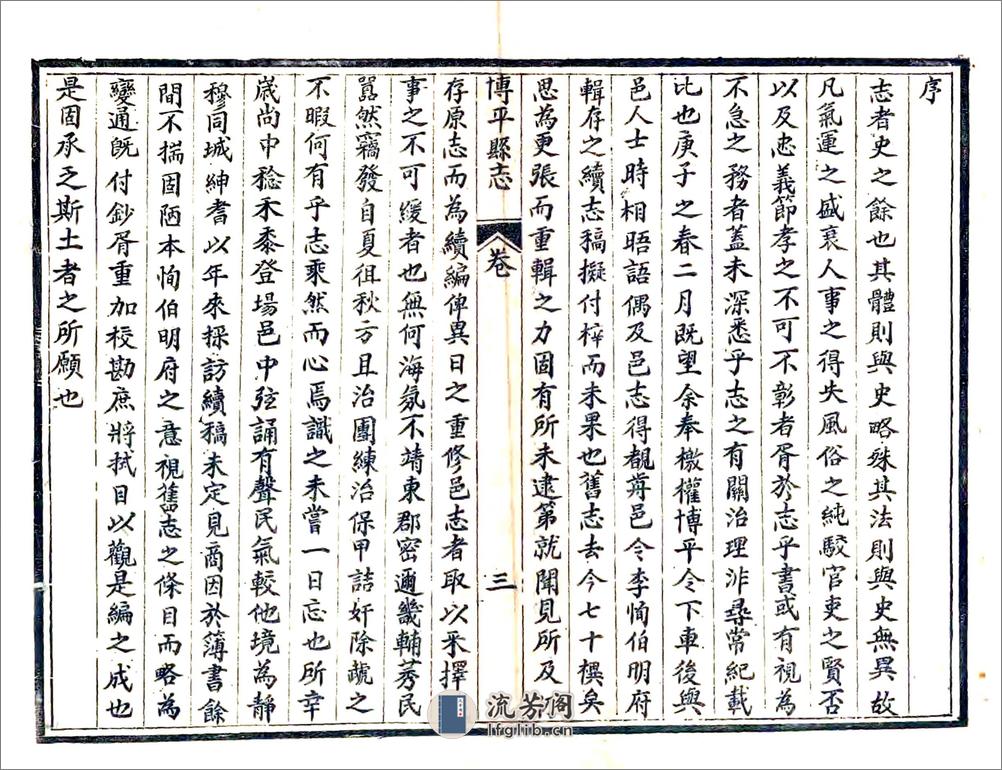 序
志者史之餘也其體則與史略殊其法則與史無異故
凡氣運之盛衰人事之得失風俗之純駁官吏之賢否
以及忠義節孝之不可不彰者胥於志乎書或有視為
不急之務者蓋未深悉乎志之有關治理非尋常紀載
比也庚子之春二月既望余奉檄權博平令下車後與
邑人士時相晤語偶及邑志得覩前邑令李恂伯明府
輯存之續志稿擬付梓而未果也舊志去今七十禩矣
思為更張而重輯之力固有所未逮第就聞見所及
博平縣志 卷 三
存原志而為續編俾異日之重修邑志者取以釆擇
事之不可緩者也無何海氛不靖東郡密邇畿輔莠民
嚣然竊發自夏徂秋方且治團練治保甲詰奸除虣之
不暇何有乎志乘然而心焉識之未嘗一日忘也所幸
歲尚中稔禾黍登場邑中弦誦有聲民氣較他境為靜
穆同城紳耆以年來採訪續稿未定見商因於簿書餘
間不揣固陋本恂伯明府之意視舊志之條目而略為
變通旣付鈔胥重加校勘庶將拭目以觀是編之成也
是固承乏斯土者之所願也
流芳阁
lfglib.cn